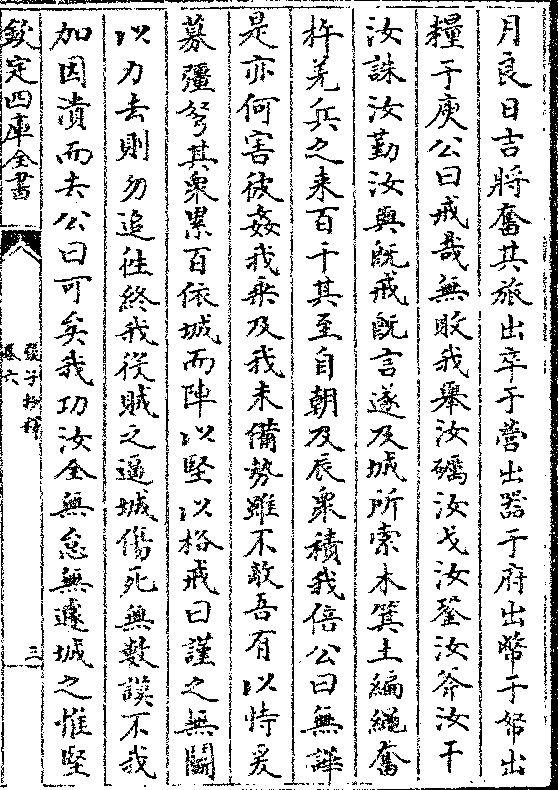 月良日吉將奮其旅出卒于營出器于府出幣于帑出
糧于庾公曰戒哉無敗我舉汝礪汝戈汝鋻汝斧汝干
汝誅汝勤汝與既戒既言遂及城所索木箕土編繩奮
杵羌兵之来百千其至自朝及辰衆積我倍公曰無譁
是亦何害彼姦我乗及我未備勢雖不敵吾有以恃爰
募彊弩其衆累百依城而陣以堅以格戒曰謹之無鬭
以力去則勿追往終我役賊之逼城傷死無數謨不我
加因潰而去公曰可矣我功汝全無怠無遽城之惟堅
欽定四庫全書
張子抄釋
卷六
三